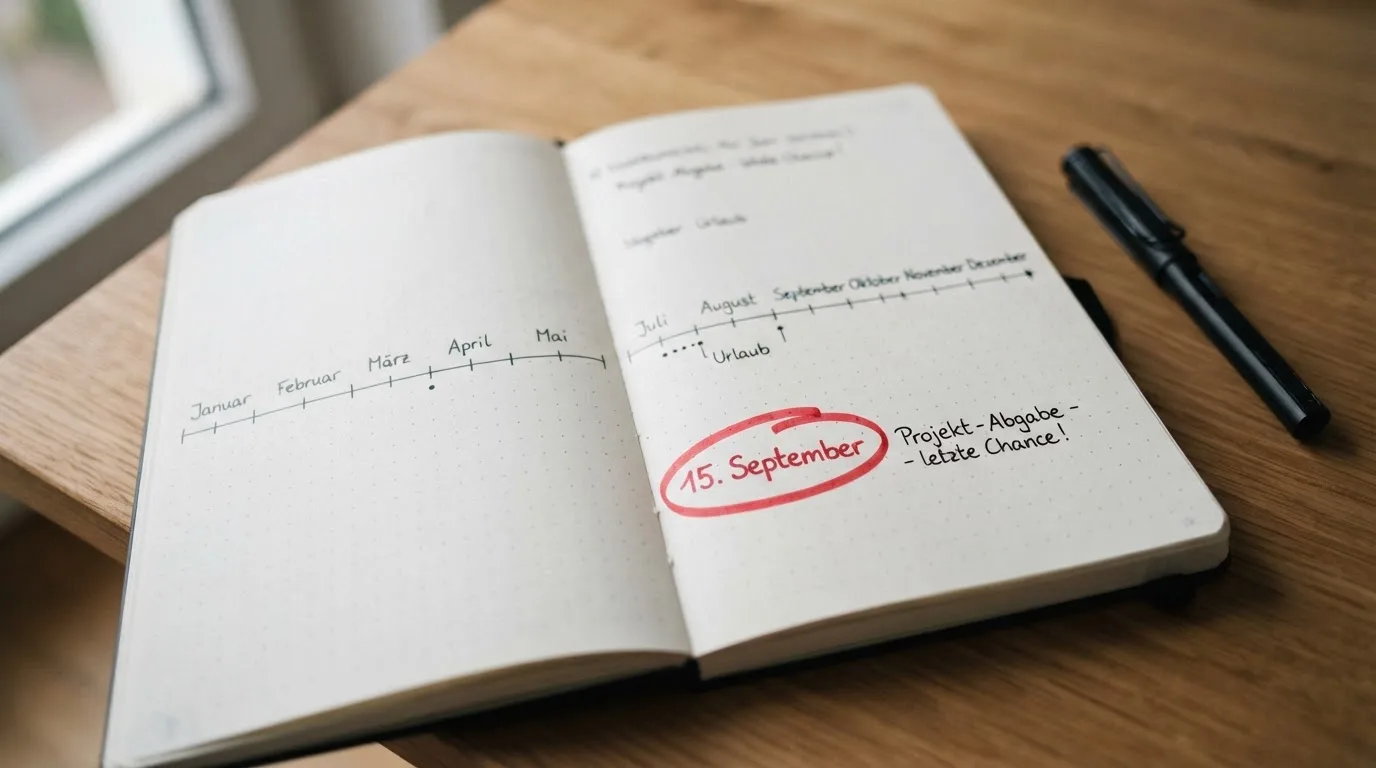 Januar Februar März April Mai
Projekt-Abgabe - letzte Chance!
Urlaub
Juli August September Oktober November Dezember
Urlaub
15. September
Projekt-Abgabe-
- letzte Chance!